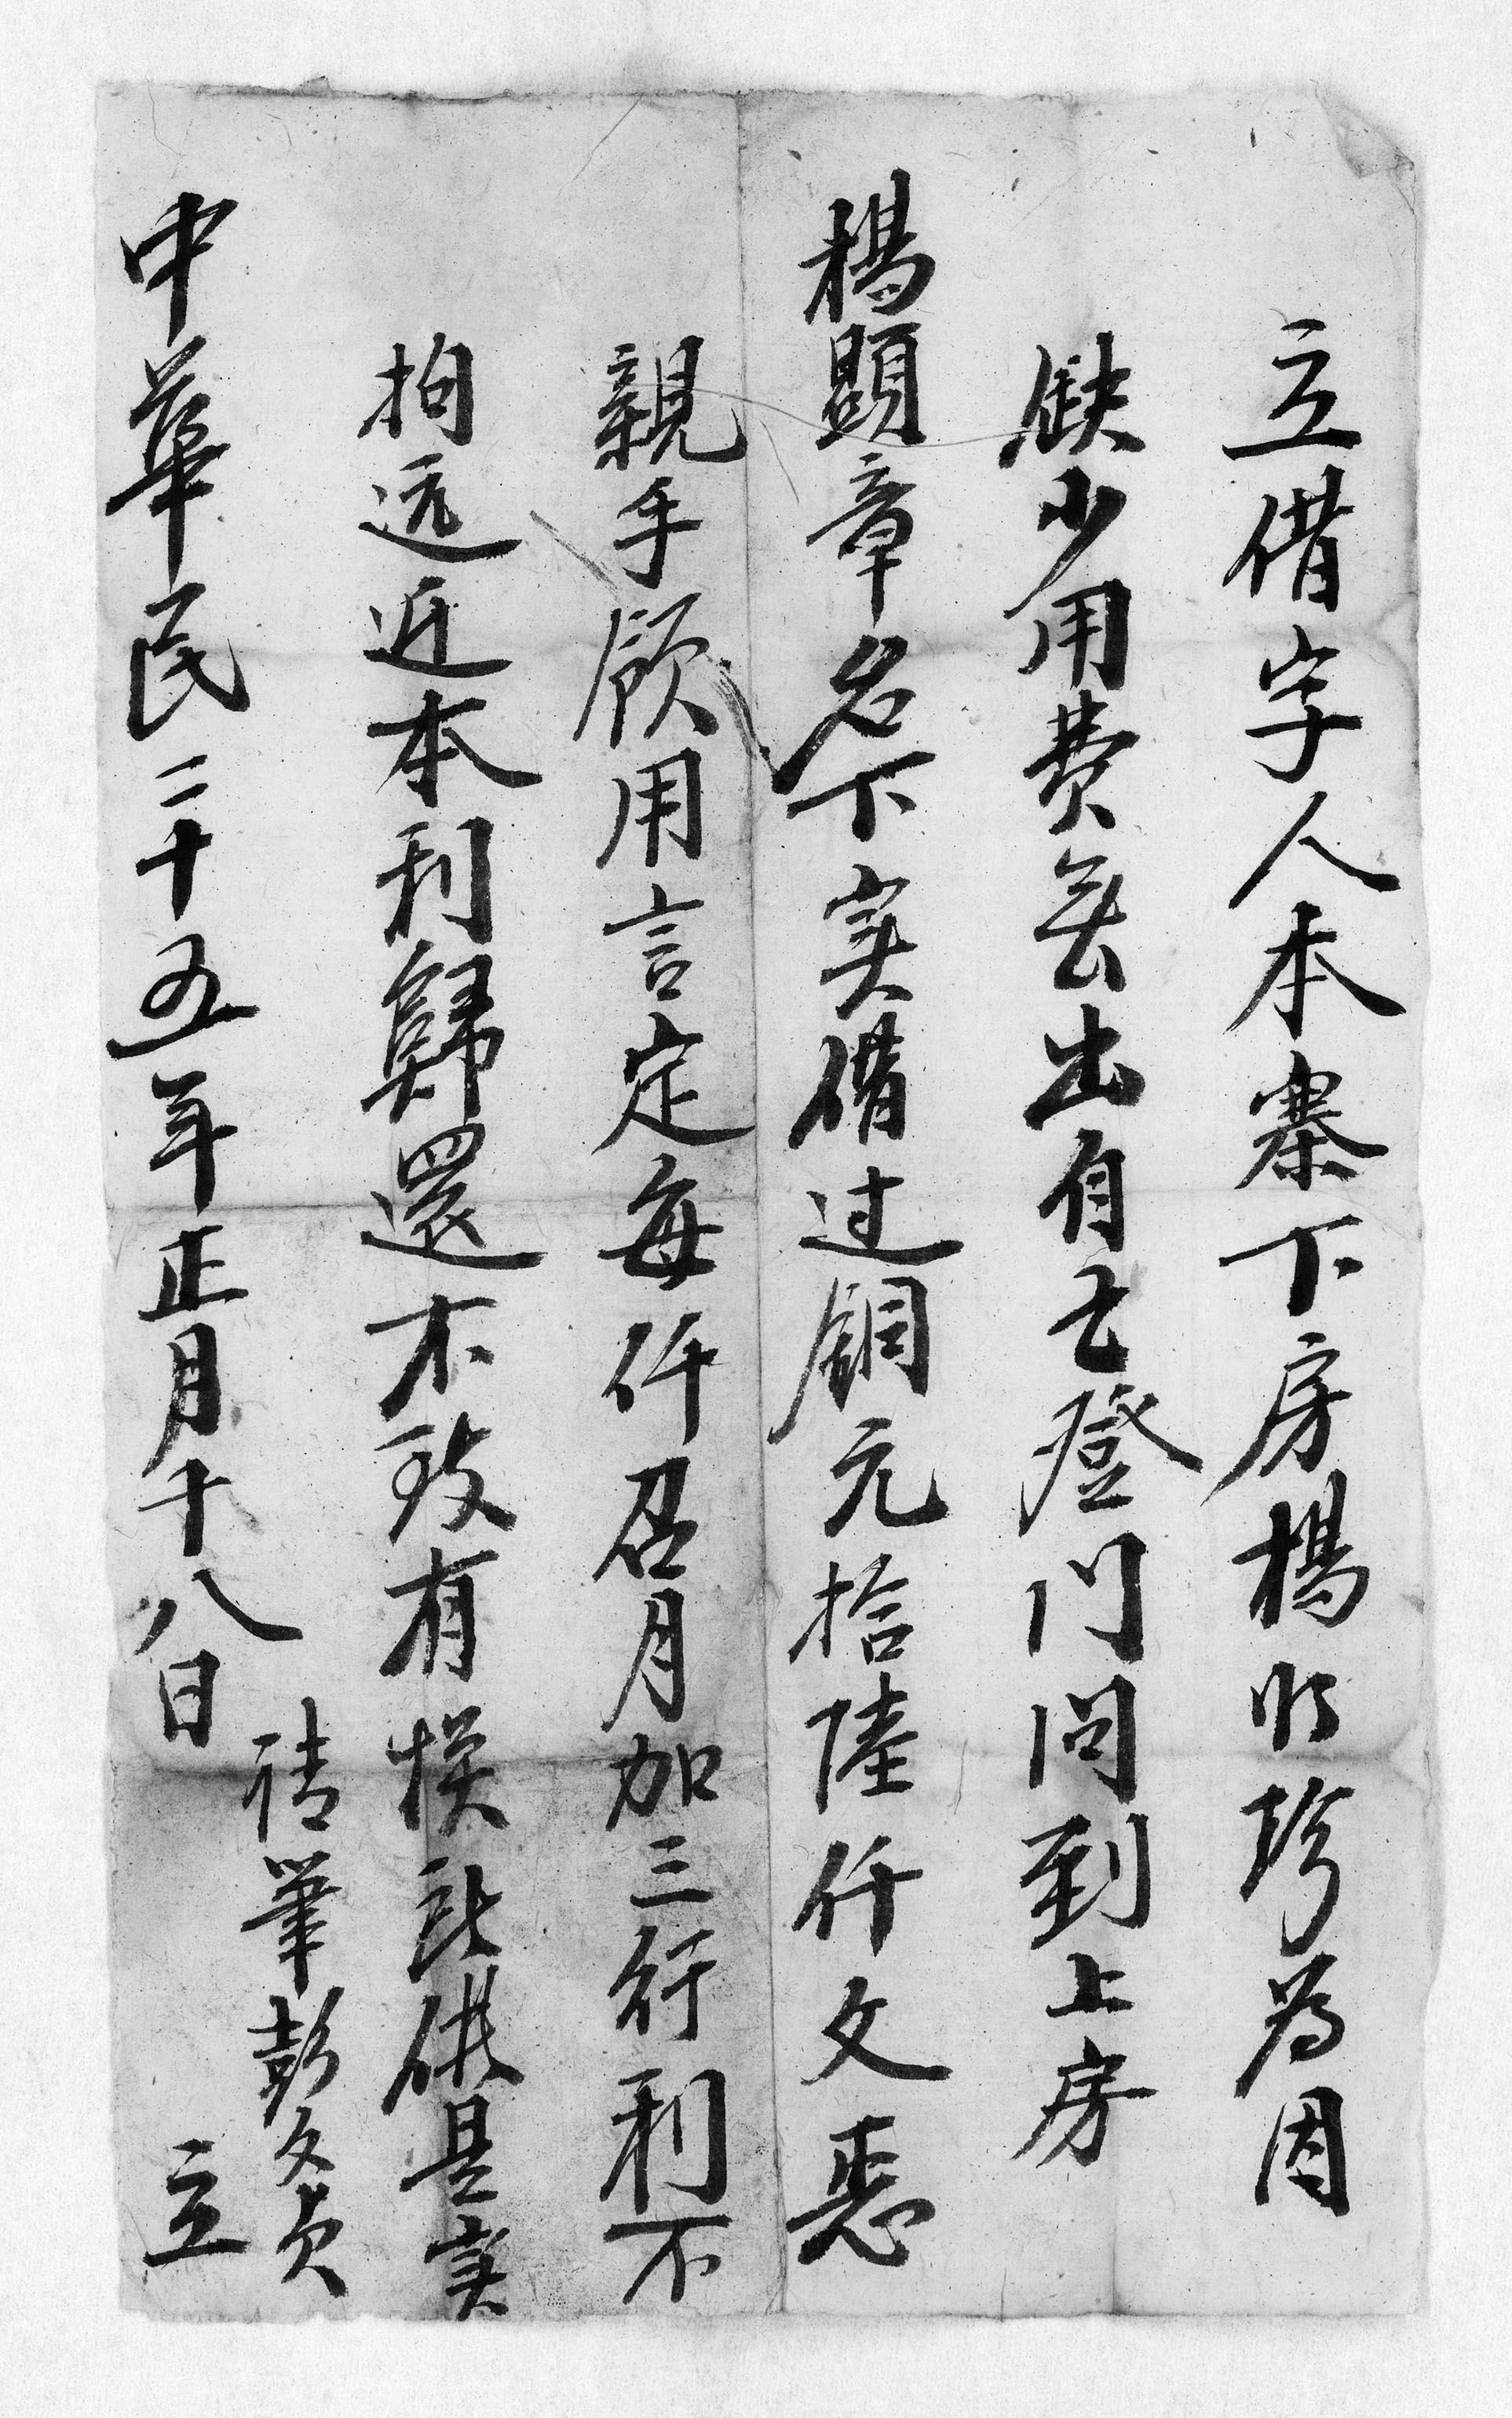 立借字人本寨下房楊收珍為因
缺少用費無出自己登门问到上房
楊顕章名下实借过銅元拾陸仟文恁
親手領用言定每仟召月加三行利不
拘远近本利歸還不致有悮武供是实
请筆彭文
中華民二十五年正月十八日 立